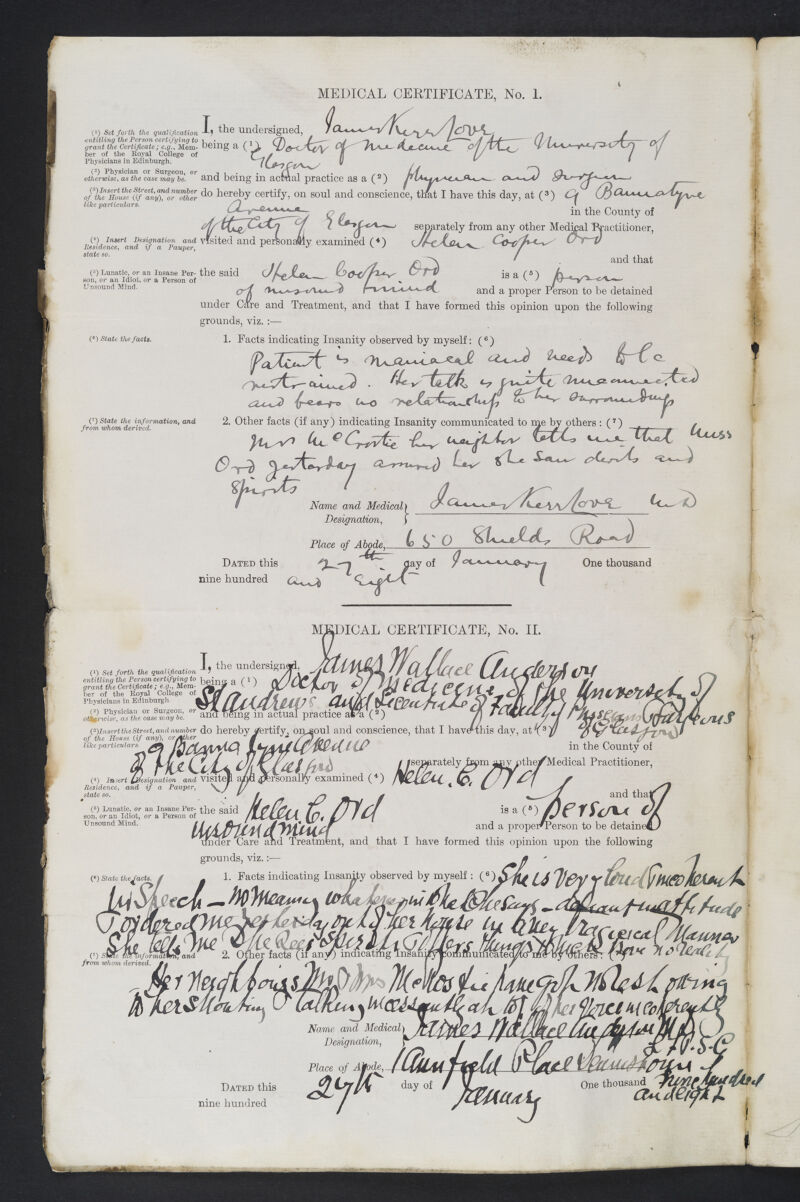 MEDICAL CERTIFICATE, No. 1.
(1) Set forth the qualification entitling the Person certifying to grant the Certificate; e.g., Member of the Royal College of Physicians in Edinburgh.
I, the undersigned, James Kerr Love
being a (1) Doctor of Medicine of the University of
Glasgow
(2) Physician or Surgeon, or otherwise, as the case may be.
and being in actual practice as a (2) physician and surgeon
(3) Insert the Street, and number of the House (if any), or other like particulars.
do hereby certify, on soul and conscience, that I have this day, at (3) 9 Bannatyne
Avenue in the County of
of the City of Glasgow separately from any other Medical Practitioner,
(4) Insert Designation and Residence, and if a Pauper, state so.
visited and personally examined (4) Helen Cooper Ord
and that
(5) Lunatic, or an Insane Person, or an Idiot, or a Person of Unsound Mind.
the said Helen Cooper Ord is a (5) person
of unsound mind and a proper Person to be detained
under Care and Treatment, and that I have formed this opinion upon the following
grounds, viz.:—
(6) State the facts.
1. Facts indicating Insanity observed by myself: (6)
Patient is maniacal and needs to be
restrained. Her talk is quite unconnected
and bears no relationship to her surroundings
(7) State the information, and from whom derived.
2. Other facts (if any) indicating Insanity communicated to me by others: (7)
Mrs McCrostie her neighbor tells me that Miss
Ord yesterday assured her she saw devils and
spirits
Name and Medical Designation, James Kerr Love M D
Place of Abode, 650 Shields Road
DATED this 27th day of January One thousand
nine hundred and Eight
MEDICAL CERTIFICATE, No. II.
(1) Set forth the qualification entitling the Person certifying to grant the Certificate; e.g., Member of the Royal College of Physicians in Edinburgh
I, the undersigned, James Wallace Anderson
being a (1) Doctor of Medicine of the University of
St Andrews and Licentiate of Faculty Surgeons
(2) Physician or Surgeon, or otherwise, as the case may be.
and being in actual practice as a (2) of Glasgow
(3) Insert the Street, and number of the House (if any), or other like particulars.
do hereby certify, on soul and conscience, that I have this day, at (3)
9 Bannatyne Avenue in the County of
of the City of Glasgow separately from any other Medical Practitioner,
(4) Insert Designation and Residence, and if a Pauper, state so.
visited and personally examined (4) Helen. C. Ord
and that
(5) Lunatic, or an Insane Person, or an Idiot, or a Person of Unsound Mind.
the said Helen C. Ord is a (5) person of
unsound mind and a proper Person to be detained
under Care and Treatment, and that I have formed this opinion upon the following
grounds, viz.:—
(6) State the facts.
1. Facts indicating Insanity observed by myself: (6) She is very loud & incoherent
in speech — no meaning whatever in what she says — defiant in attitude
& ordered me yesterday out of her house in a very tragical manner
She tells me she sees spirits & others things which have no reality
(7) State the information, and from whom derived.
2. Other facts (if any) indicating Insanity communicated to me by others: (7)
Her neighbours Mr & Mrs get no rest owing
to her shouting & talking incessantly at top of her voice incoherently
Name and Medical Designation, James Wallace Anderson M.D.
Place of Abode, 1 Annfield Place Dennistoun
DATED this 27th day of January One thousand nine hundred
nine hundred and eight